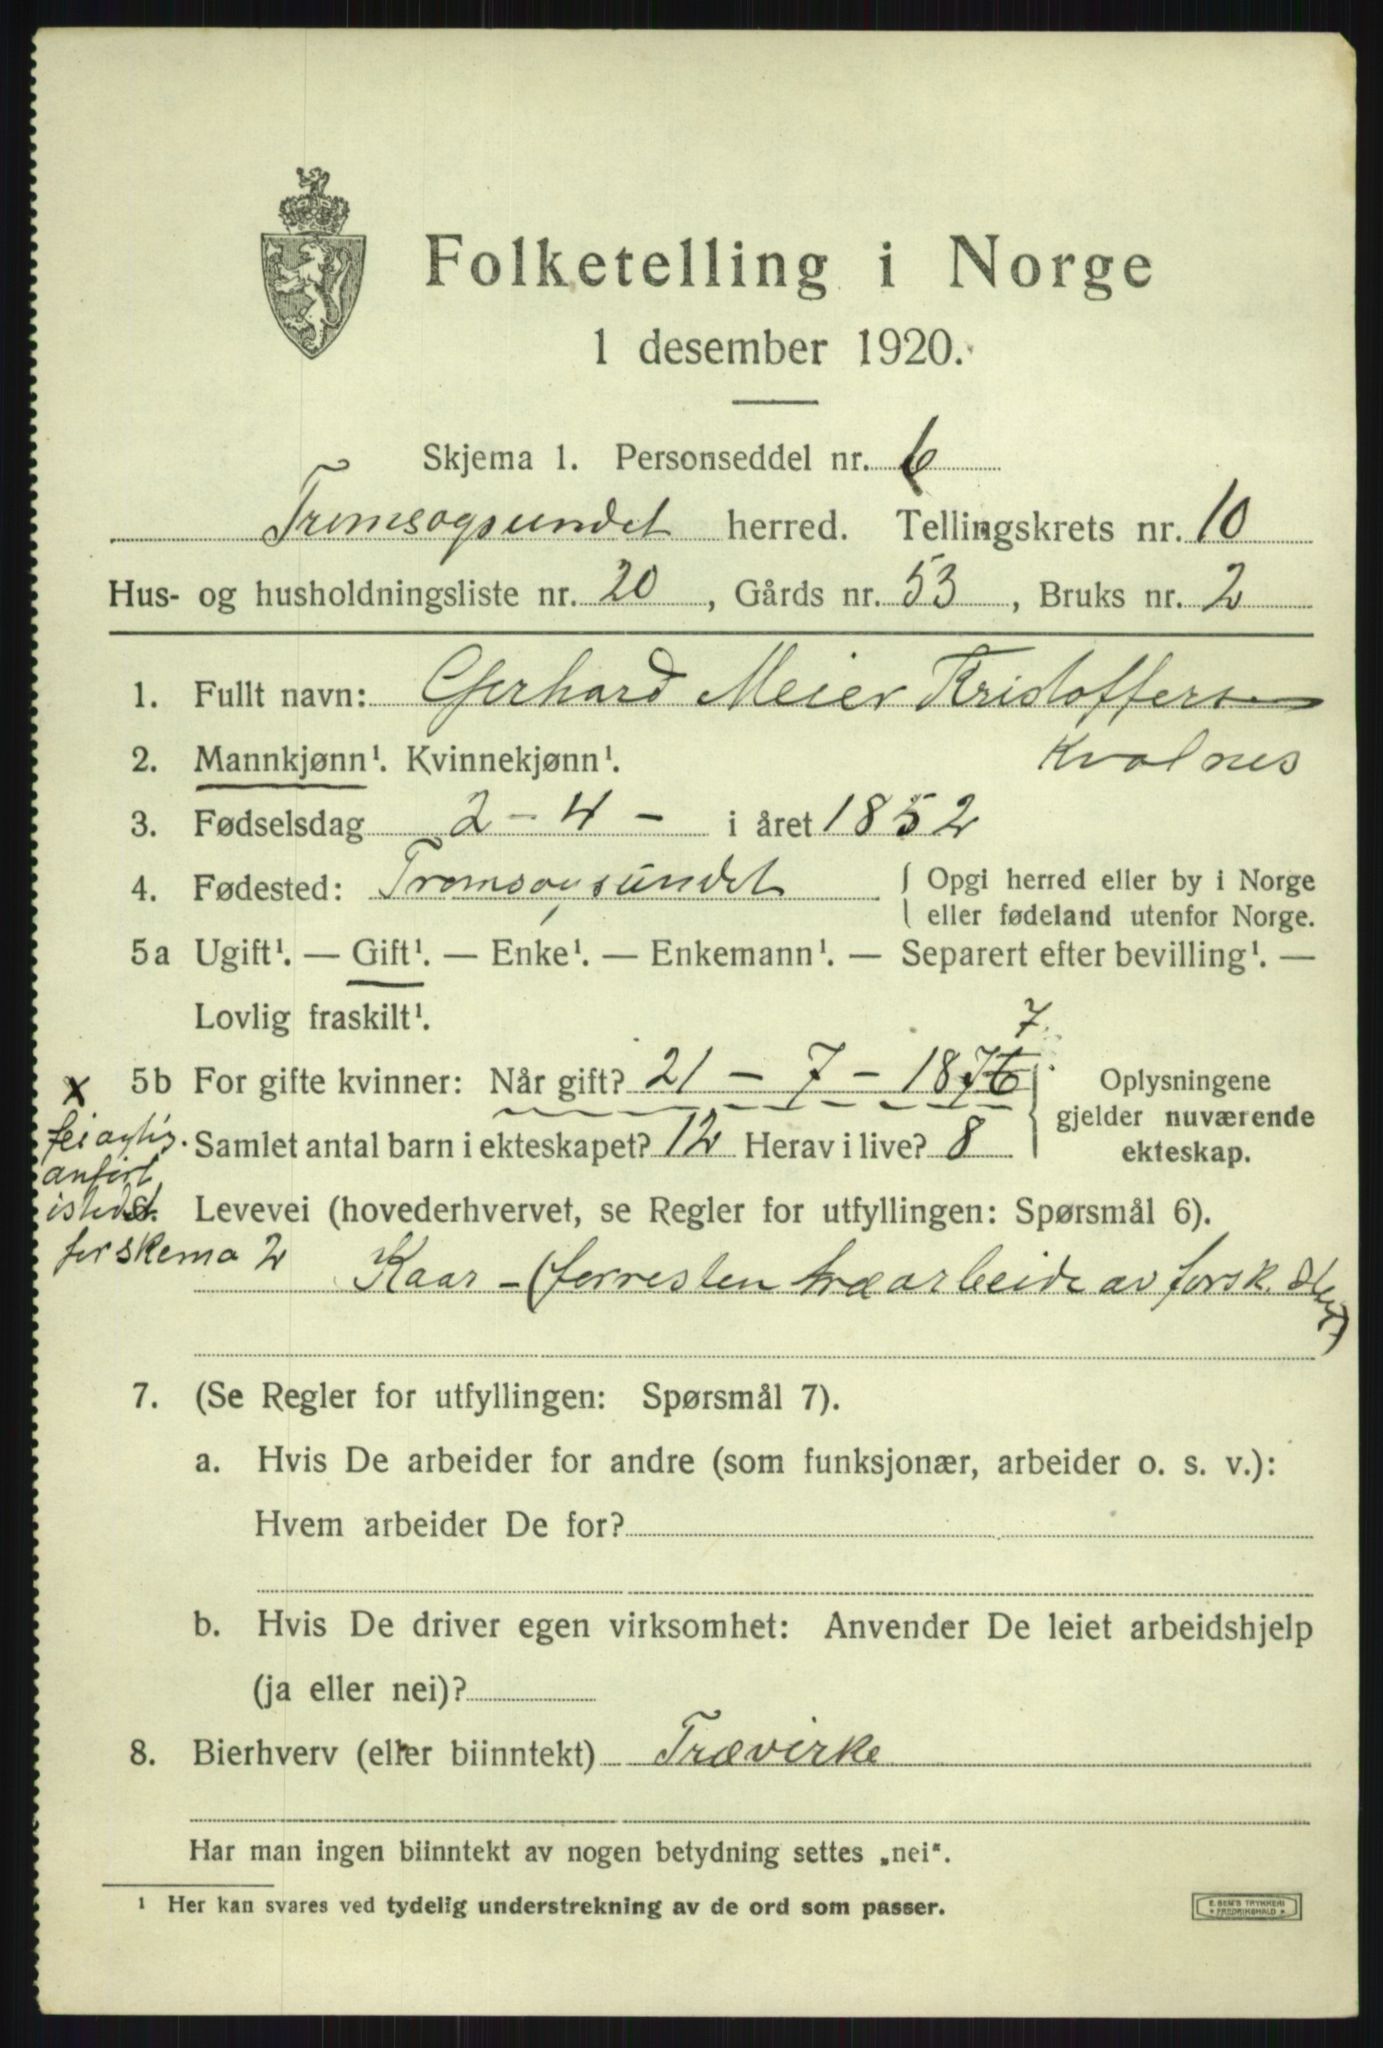 Folketelling i Norge
1 desember 1920.
Skjema 1. Personseddel nr. 6
Tromsøysundet herred. Tellingskrets nr. 10
Hus- og husholdningsliste nr. 20, Gårds nr. 53, Bruks nr. 2
1. Fullt navn: Gerhard Meier Kristoffersen
Kvalnes
2. Mannkjønn¹. Kvinnekjønn¹.
3. Fødselsdag 2 - 4 - i året 1852
4. Fødested: Tromsøysundet { Opgi herred eller by i Norge
eller fødeland utenfor Norge.
5a Ugift¹. — Gift¹. — Enke¹. — Enkemann¹. — Separert efter bevilling¹. —
Lovlig fraskilt¹.
7
x 5b For gifte kvinner: Når gift? 21 - 7 - 1876 Oplysningene
gjelder nuværende
ekteskap.
Samlet antal barn i ekteskapet? 12 Herav i live? 8
feiagtig.
anført
istedet
for skema 2
6. Levevei (hovederhvervet, se Regler for utfyllingen: Spørsmål 6).
Kaar - (forresten træarbeide av forsk. slags)
7. (Se Regler for utfyllingen: Spørsmål 7).
a. Hvis De arbeider for andre (som funksjonær, arbeider o. s. v.):
Hvem arbeider De for?
b. Hvis De driver egen virksomhet: Anvender De leiet arbeidshjelp
(ja eller nei)?
8. Bierhverv (eller biinntekt) Trævirke
Har man ingen biinntekt av nogen betydning settes „nei".
¹ Her kan svares ved tydelig understrekning av de ord som passer.
E. SEM'S TRYKKERI
* FREDRIKSHALD *